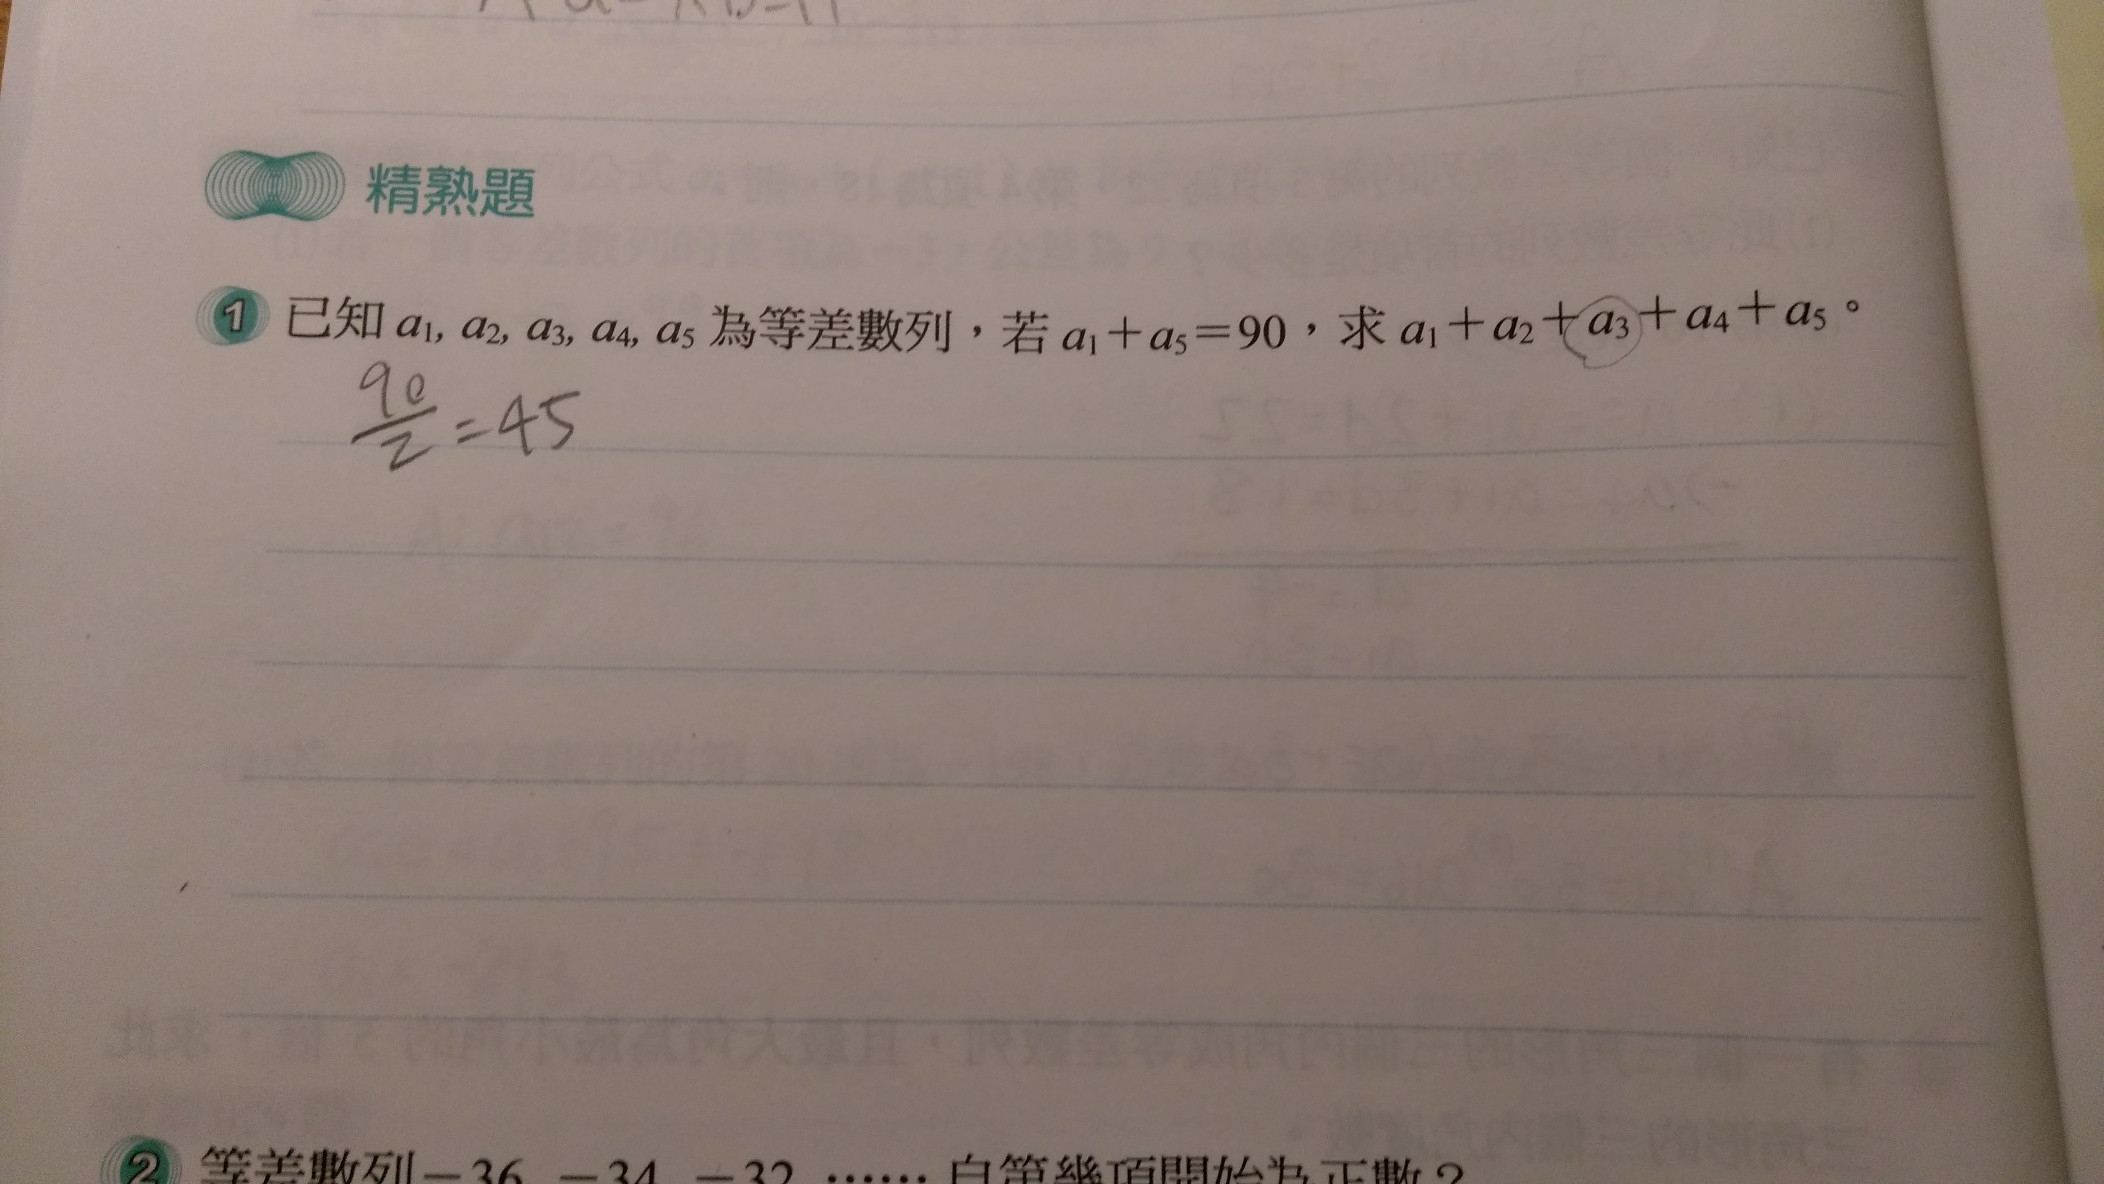 精熟題
1 已知 a₁, a₂, a₃, a₄, a₅ 為等差數列，若 a₁＋a₅＝90，求 a₁＋a₂＋a₃＋a₄＋a₅。
90/2 = 45
2 等差數列－36, －34, －32, …… 自第幾項開始為正數？